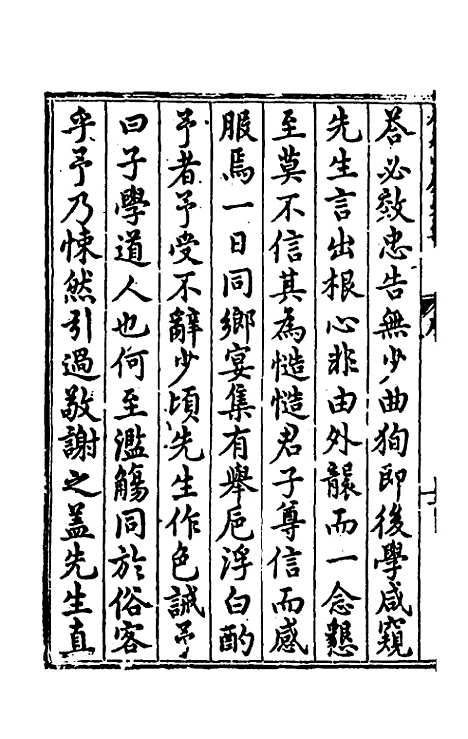 答必效忠告無少曲狥即後學咸窺
先生言出根心非由外襲而一念懇
至莫不信其為慥慥君子尊信而感
服焉一日同鄉宴集有舉巵浮白酌
予者予受不辭少頃先生作色誡予
曰子學道人也何至濫觴同於俗客
乎予乃悚然引過敬謝之盖先生直